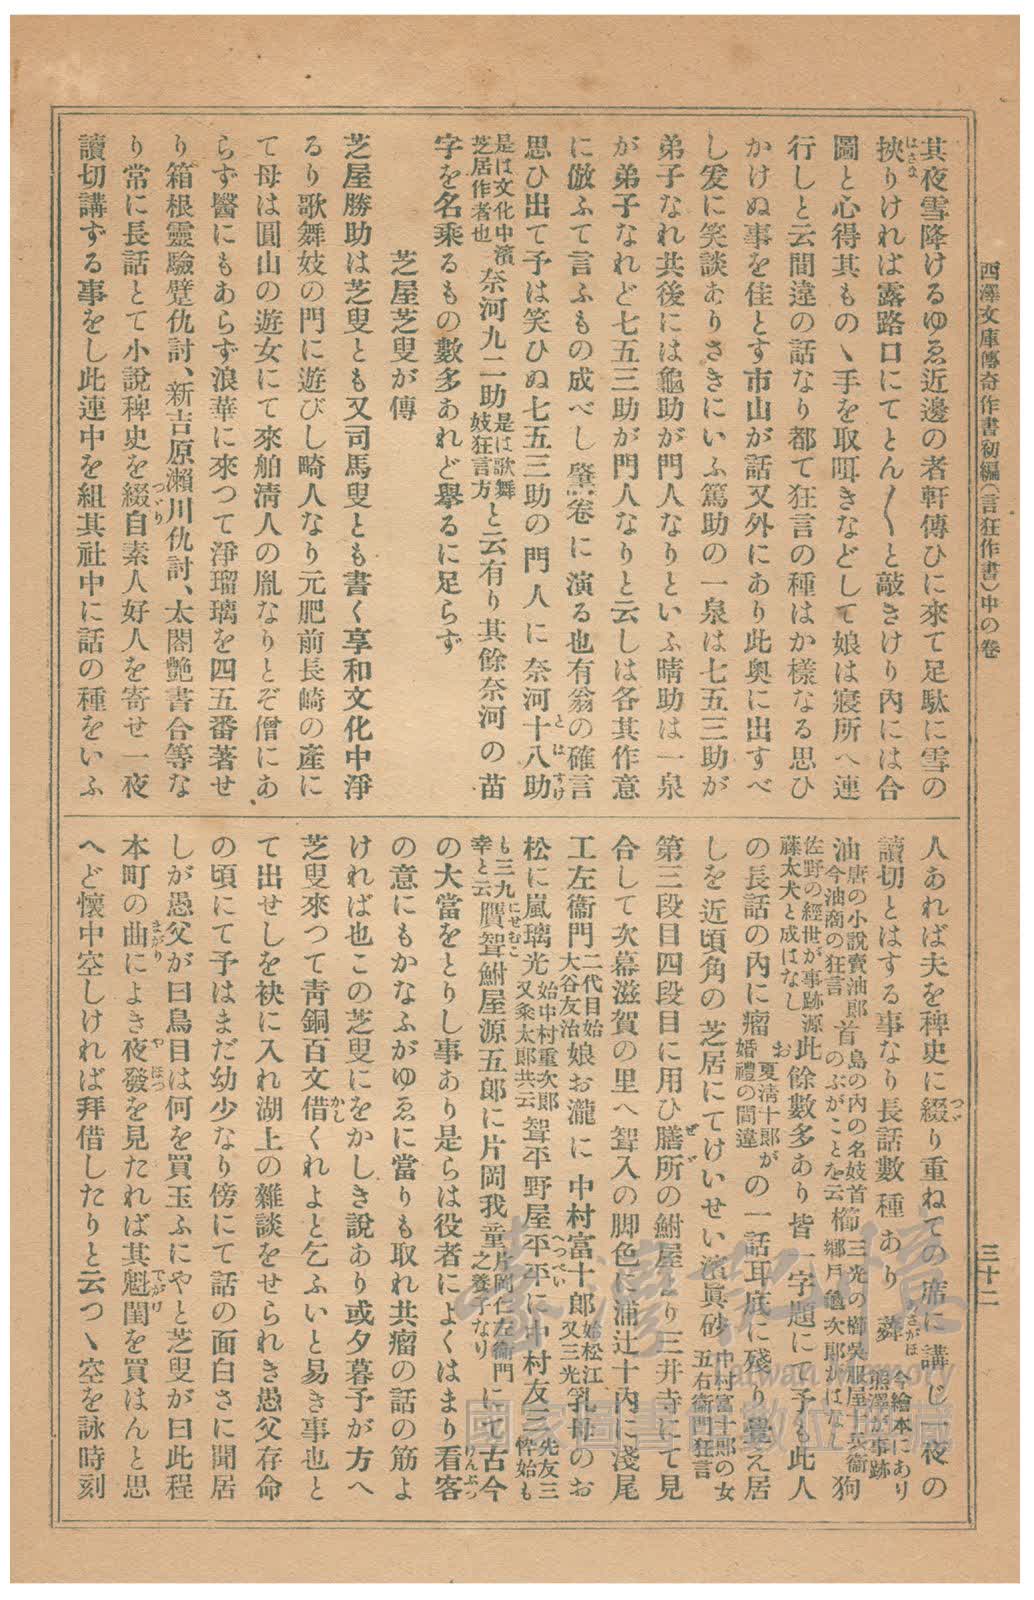 西澤文庫傳奇作書初編(言狂作書)中の卷
三十二
其夜雪降けるゆゑ近邊の者軒傳ひに來て足駄に雪の
挾りければ露路口にてとん〳〵と敲きけり內には合
圖と心得其ものゝ手を取咡きなどして娘は寢所へ連
行しと云間違の話なり都て狂言の種はか樣なる思ひ
かけぬ事を佳とす市山が話又外にあり此奧に出すべ
し爰に笑談ありさきにいふ篤助の一泉は七五三助が
弟子なれ共後には龜助が門人なりといふ晴助は一泉
が弟子なれど七五三助が門人なりと云しは各其作意
に倣ふて言ふもの成べし肇卷に演る也有翁の確言
思ひ出て予は笑ひぬ七五三助の門人に奈河十八助
是は文化中濱芝居作者也奈河九二助是は歌舞妓狂言方と云有り其餘奈河の苗
字を名乘るもの數多あれど擧るに足らず
芝屋芝叟が傳
芝屋勝助は芝叟とも又司馬叟とも書く享和文化中淨
るり歌舞妓の門に遊びし畸人なり元肥前長崎の產に
て母は圓山の遊女にて來舶淸人の胤なりとぞ僧にあ
らず醫にもあらず浪華に來つて淨瑠璃を四五番著せ
り箱根靈驗躄仇討、新吉原瀨川仇討、太閤艶書合等な
り常に長話とて小說稗史を綴自素人好人を寄せ一夜
讀切講ずる事をし此連中を組其社中に話の種をいふ
人あれば夫を稗史に綴り重ねての席に講じ一夜の
讀切とはする事なり長話數種あり蕣今繪本にあり熊澤が事跡
油唐の小說賣油郞今油商の狂言首島の內の名妓首のぶがことを云櫛三光の櫛吳服屋十兵衞鄕月龜次郞がはなし狗
佐野の經世が事跡源藤太犬と成はなし此餘數多あり皆一字題にて予も此人
の長話の內に瘤お夏淸十郞が婚禮の間違の一話耳底に殘り覺え居
しを近頃角の芝居にてけいせい濱眞砂中村富十郞の女五右衞門狂言
第三段目四段目に用ひ膳所の鮒屋より三井寺にて見
合して次幕滋賀の里へ聟入の脚色に浦辻十內に淺尾
工左衞門二代目始大谷友治娘お瀧に中村富十郞始松江又三光乳母のお
松に嵐璃光始中村重次郞又粂太郞共云聟平野屋平平に中村友三先友三忰始も
も三九幸と云贋聟鮒屋源五郞に片岡我童片岡仁左衞門之養子なりにて古今
の大當をとりし事あり是らは役者によくはまり看客
の意にもかなふがゆゑに當りも取れ共瘤の話の筋よ
ければ也この芝叟にをかしき說あり或夕暮予が方へ
芝叟來つて靑銅百文借くれよと乞ふいと易き事也と
て出せしを袂に入れ湖上の雜談をせられき愚父存命
の頃にて予はまだ幼少なり傍にて話の面白さに聞居
しが愚父が曰鳥目は何を買玉ふにやと芝叟が曰此程
本町の曲によき夜發を見たれば其魁閨を買はんと思
へど懷中空しければ拜借したりと云つゝ空を詠時刻
臺灣記憶
Taiwan Memory
國家圖書館數位典藏